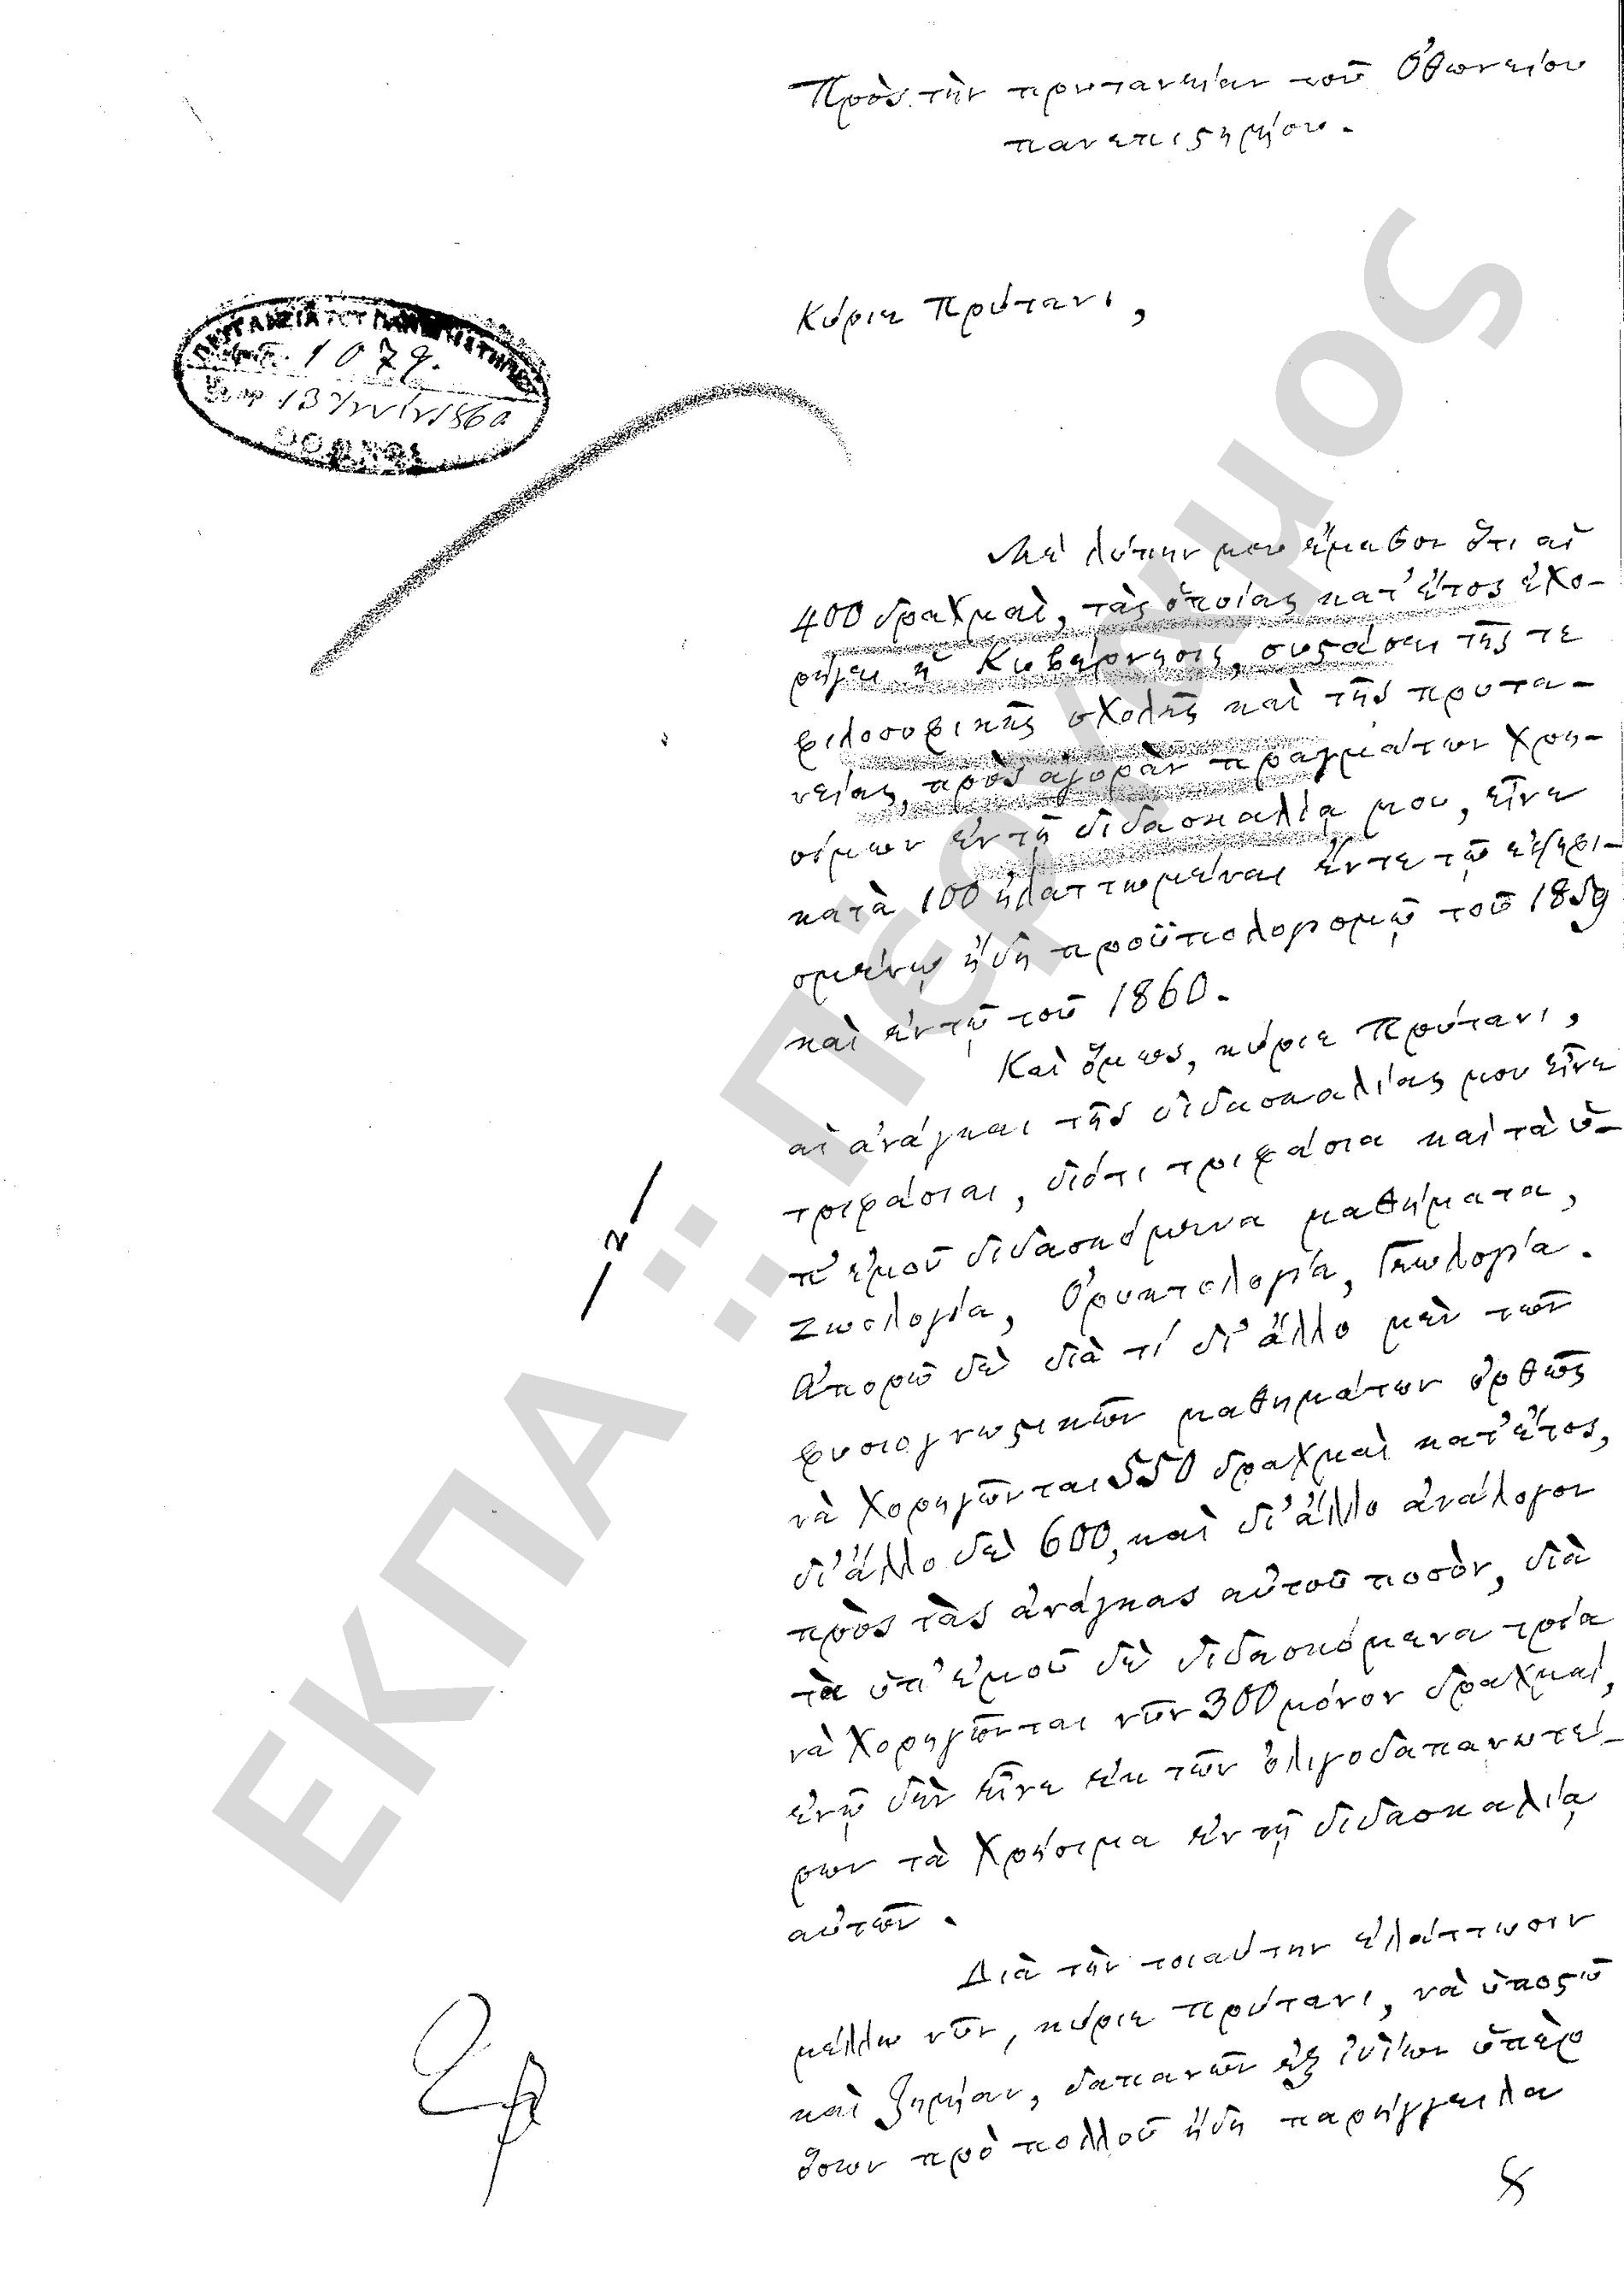 Πρὸς τὴν πρυτανείαν τοῦ Ὀθωνείου
πανεπιστημίου.
Κύριε Πρύτανι,
ΠΡΥΤΑΝΕΙΑ ΤΟΥ ΠΑΝΕΠΙΣΤΗΜΙΟΥ
1079.
13 Ἰουνίου 1860
ΟΘΩΝΟΣ
Μὲ λύπην μου ἔμαθον ὅτι αἱ
400 δραχμαὶ, τὰς ὁποίας κατ' ἔτος ἐχο-
ρήγει ἡ Κυβέρνησις, συστάσει τῆς τε
φιλοσοφικῆς σχολῆς καὶ τῆς πρυτα-
νείας, πρὸς ἀγορὰν πραγμάτων χρη-
σίμων ἐν τῇ διδασκαλίᾳ μου, εἶνε
κατὰ 100 ἠλαττωμέναι ἔν τε τῷ ἐψηφι-
σμένῳ ἤδη προϋπολογισμῷ τοῦ 1859
καὶ ἐν τῷ τοῦ 1860.
Καὶ ὅμως, κύριε Πρύτανι,
αἱ ἀνάγκαι τῆς διδασκαλίας μου εἶνε
τριφάσιαι, διότι τριφάσια καὶ τὰ ὑ-
π' ἐμοῦ διδασκόμενα μαθήματα,
Ζωολογία, Ὀρυκτολογία, Γεωλογία.
Ἀπορῶ δὲ διὰ τί δι' ἄλλο μὲν τῶν
φυσιογνωστικῶν μαθημάτων ὀρθῶς
νὰ χορηγῶνται 550 δραχμαὶ κατ' ἔτος,
δι' ἄλλο δὲ 600, καὶ δι' ἄλλο ἀνάλογον
πρὸς τὰς ἀνάγκας αὐτοῦ ποσὸν, διὰ
τὰ ὑπ' ἐμοῦ δὲ διδασκόμενα τρία
νὰ χορηγῶνται νῦν 300 μόνον δραχμαὶ,
ἐνῷ δὲν εἶνε ἐκ τῶν ὀλιγοδαπανωτέ-
ρων τὰ χρήσιμα ἐν τῇ διδασκαλίᾳ
αὐτῶν.
Διὰ τὴν τοιαύτην ἐλάττωσιν
μέλλω νῦν, κύριε πρύτανι, νὰ ὑποστῶ
καὶ ζημίαν, δαπανῶν ἐξ ἰδίων ὑπὲρ
ὅσων πρὸ πολλοῦ ἤδη παρήγγειλα
— 2 —
ΕΚΠΑ :: Πέργαμος